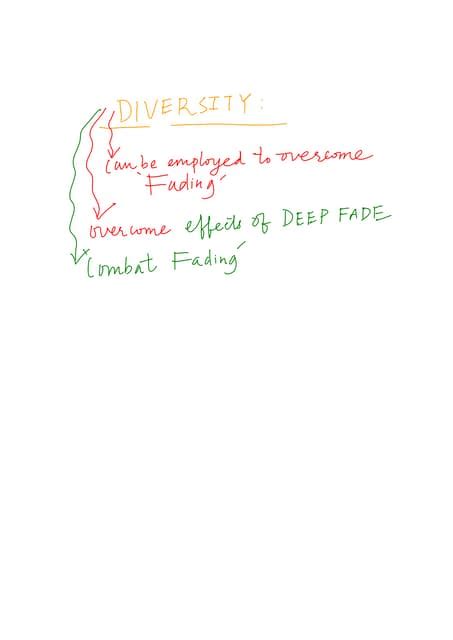 DIVERSITY:
can be employed to overcome
'Fading'
overcome effects of DEEP FADE
'Combat Fading'